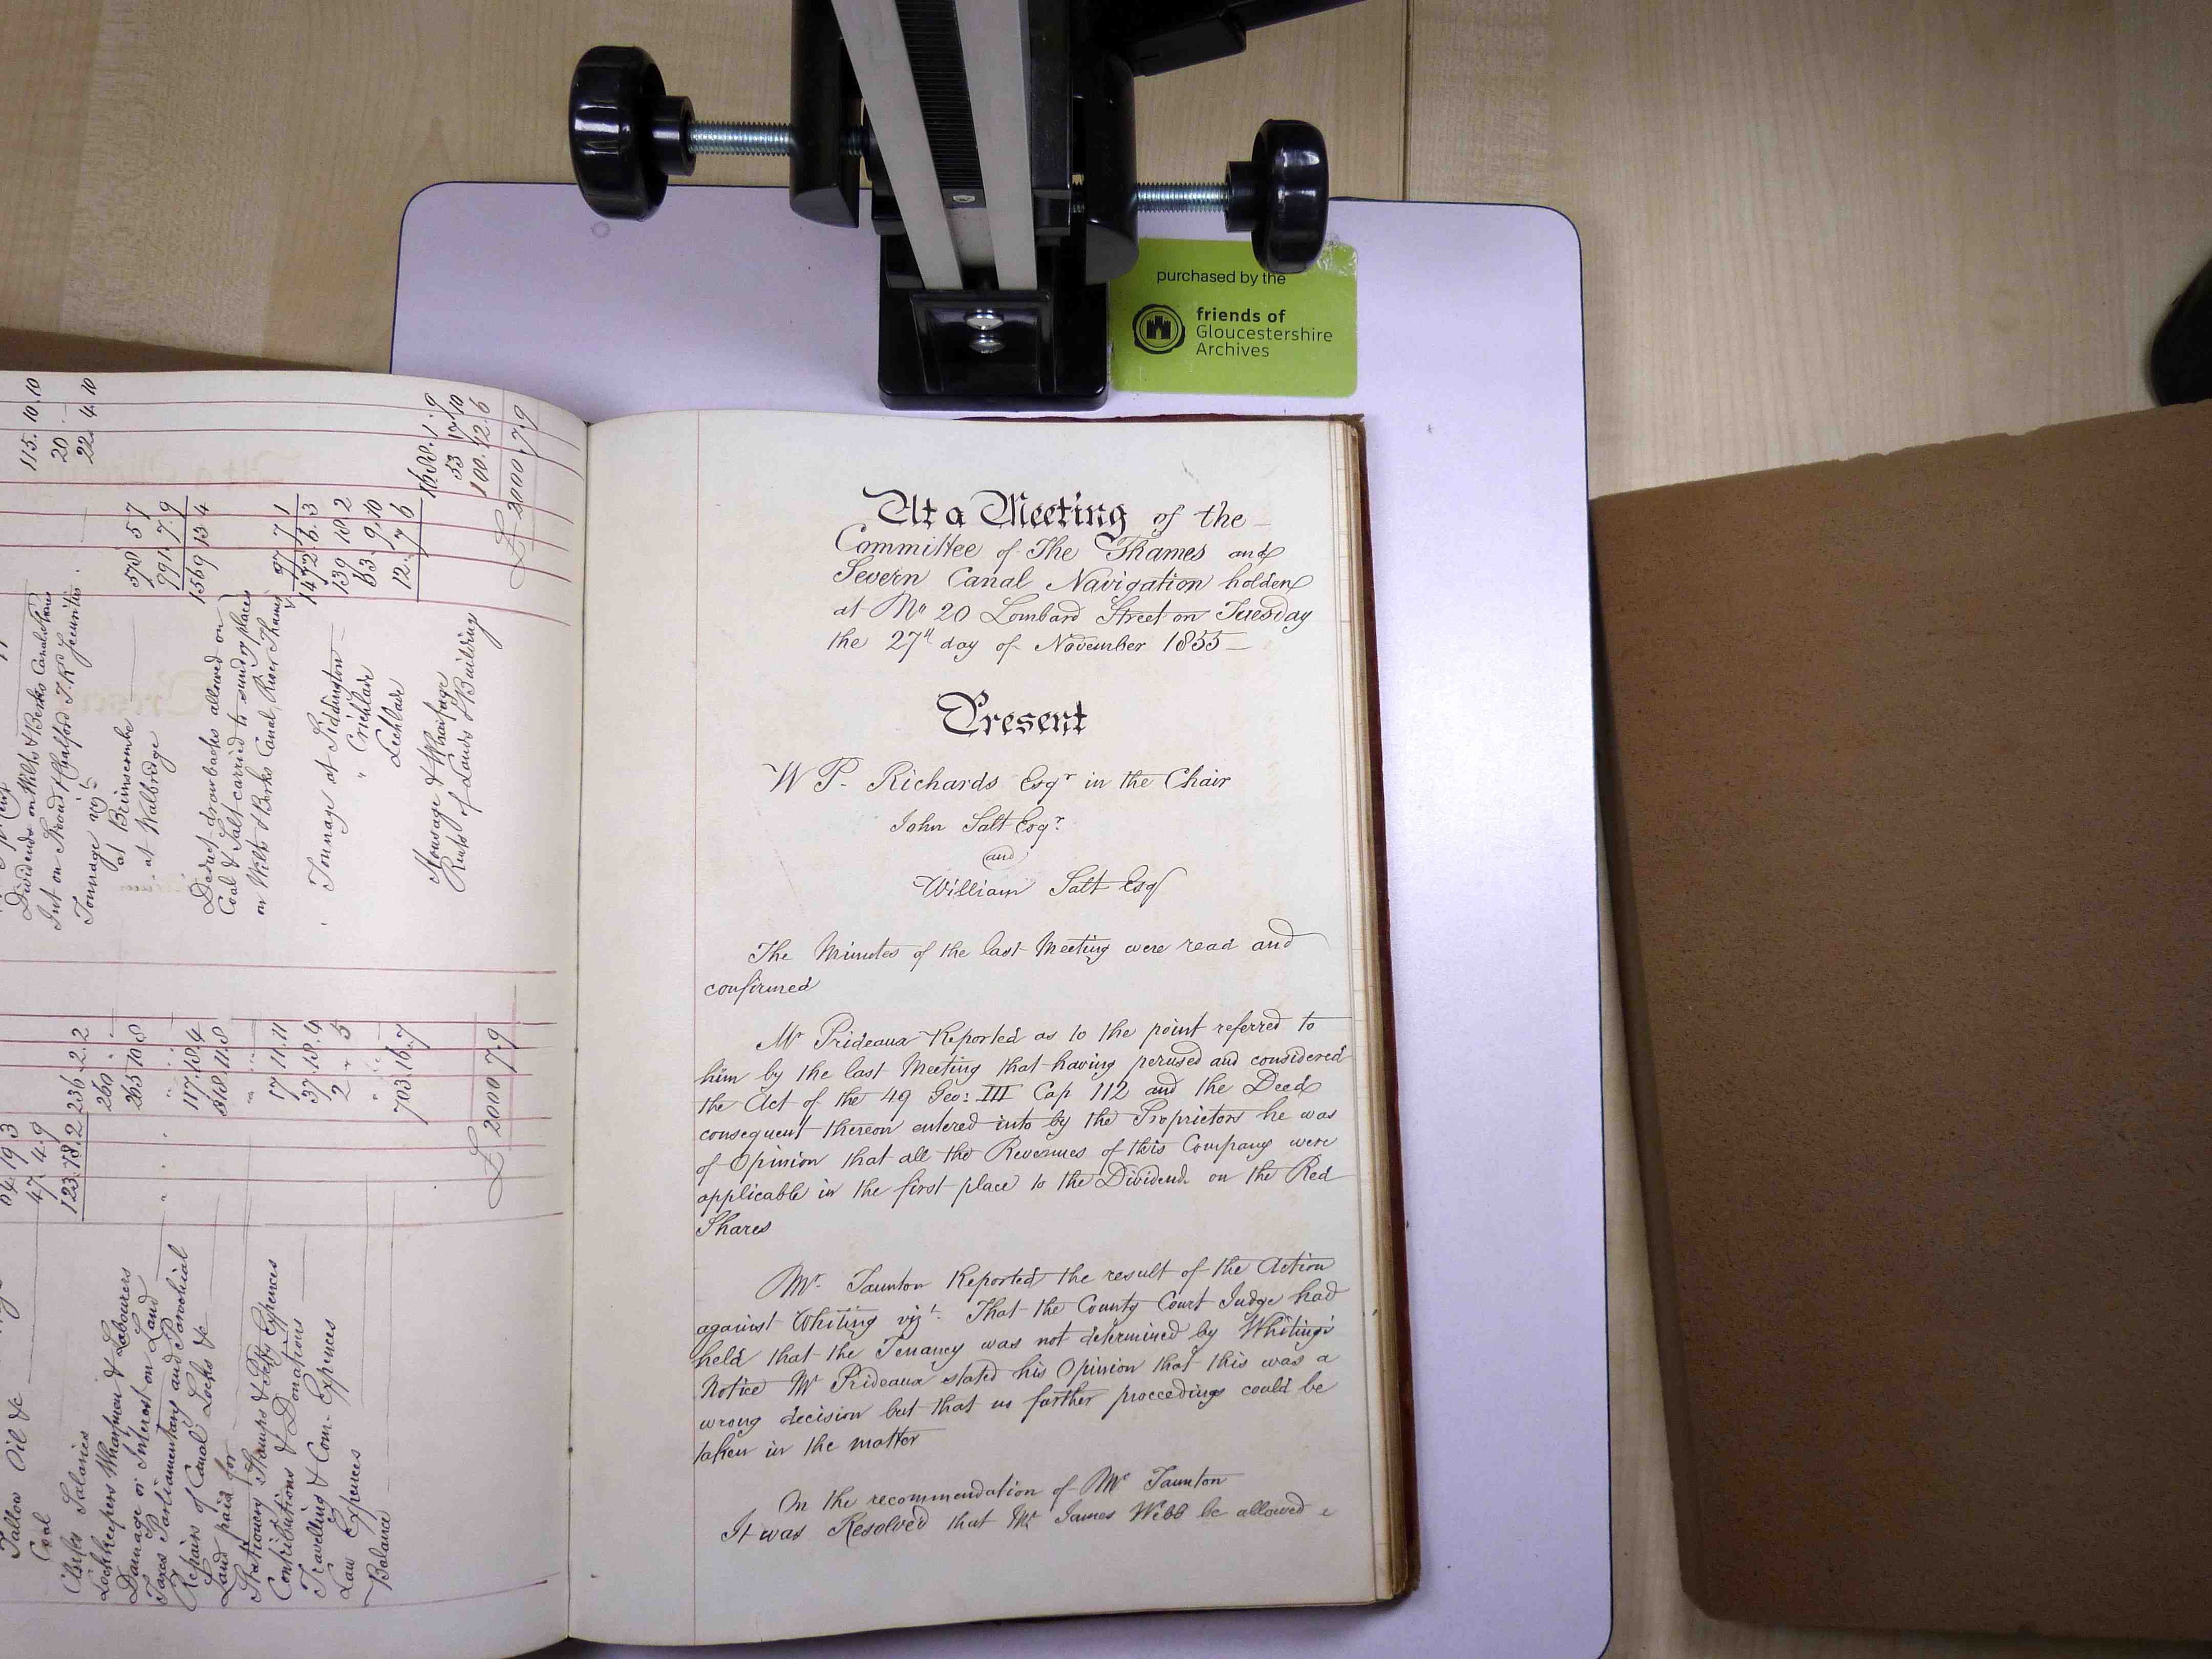 purchased by the
friends of
Gloucestershire
Archives
At a Meeting of the
Committee of The Thames and
Severn Canal Navigation holden
at No 20 Lombard Street on Tuesday
the 27th day of November 1855
Present
W P. Richards Esqr in the Chair
John Salt Esqr.
and
William Salt Esqr
The Minutes of the last Meeting were read and
confirmed
Mr Prideaux Reported as to the point referred to
him by the last Meeting that having perused and considered
the Act of the 49 Geo: III Cap 112 and the Deed
consequent thereon entered into by the Proprietors he was
of Opinion that all the Revenues of this Company were
applicable in the first place to the Dividend on the Red
Shares
Mr. Taunton Reported the result of the Action
against Whiting vizt. That the County Court Judge had
held that the Tenancy was not determined by Whiting's
Notice Mr Prideaux stated his Opinion that this was a
wrong decision but that no further proceedings could be
taken in the matter
On the recommendation of Mr Taunton
It was Resolved that Mr James Webb be allowed
Dividend on Wilts & Berks Canal Shares
Int on Stroud & Chalford T. Rd Securities
115. 10. 10
20
22 4. 10
Tonnage vizt
at Brimscombe 578 5 7
at Walbridge 991. 7. 9
1569 13 4
Deduct drawbacks allowed on
Coal & Salt carried to sundry places
on Wilts & Berks Canal, River Thames 97 7 1
1472. 6. 3
Tonnage at Siddington 139 18 2
" Cricklade 63. 9. 10
Lechlade 12. 7 6
1688. 1. 9
Housage & Wharfage 53 17 10
Rents of Lands & Building 100. 12. 6
£ 2000 7 9
Tallow Oil &c 47 4. 9
Coal 123. 18. 2 236. 2. 2
Chief Salaries 260
Lockkeepers Wharfmen & Labourers 265 10. 8
Damage or Interest on Land
Taxes Parliamentary and Parochial 117. 18. 4
Repairs of Canal Locks &c 318. 11. 8
Land paid for
Stationery Stamps & Petty Expences 17 11. 11
Contributions & Donations 37. 18. 4
Travelling & Com. Expences 2 " 5
Law Expences
Balance 703. 16. 7
£ 2000 7 9